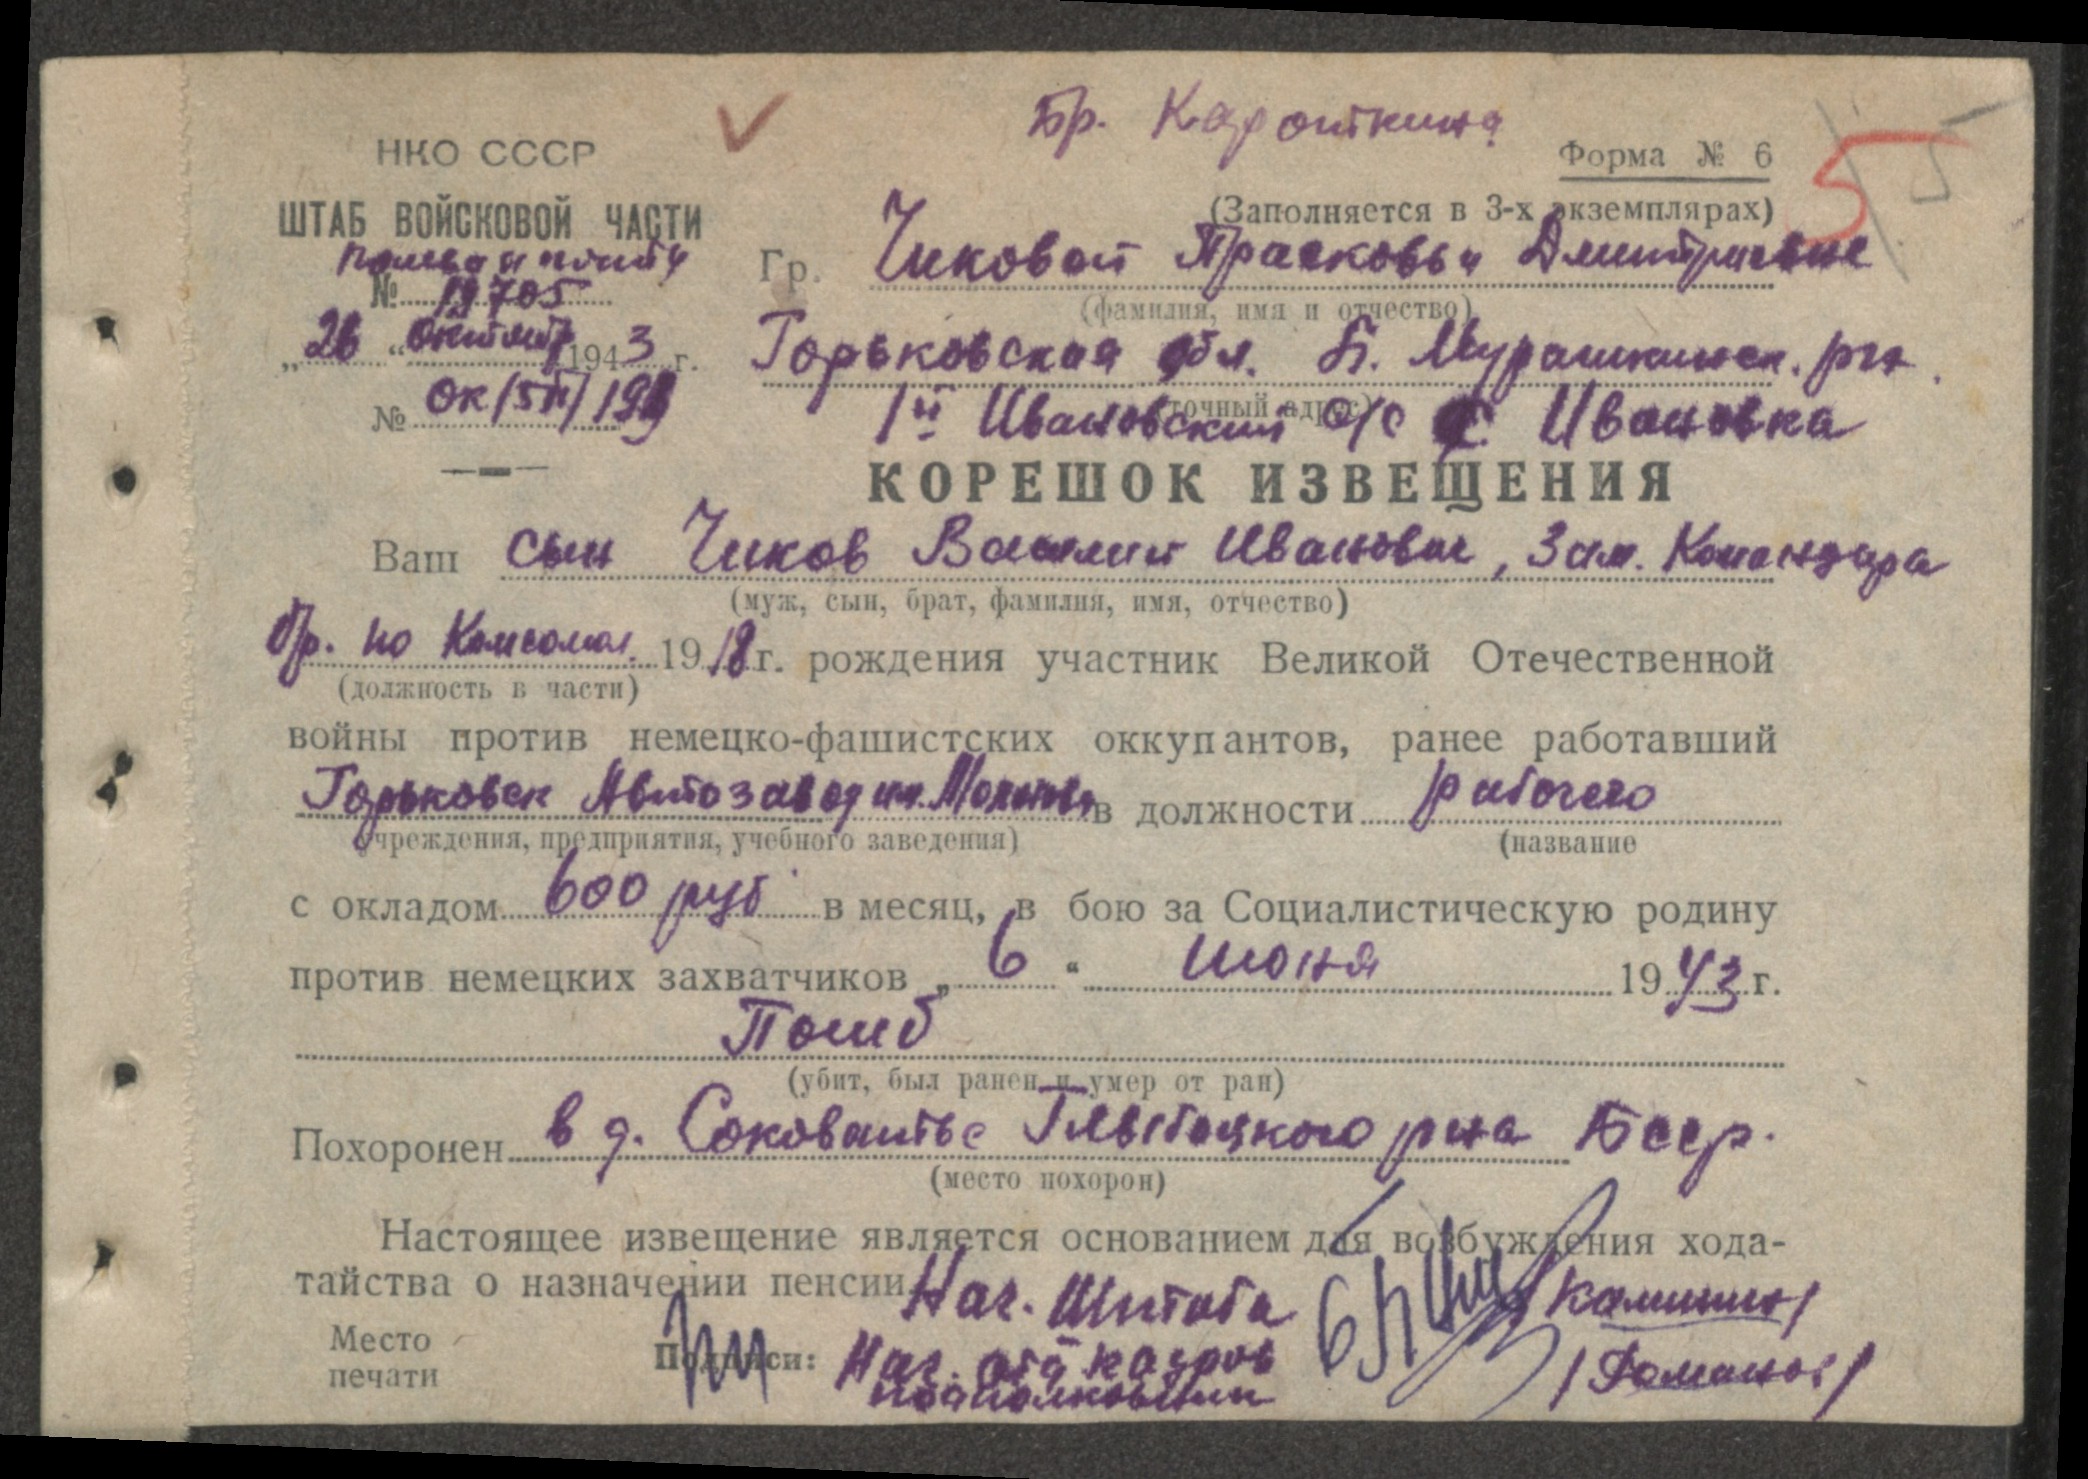 Бр. Короткина
НКО СССР
Форма № 6
ШТАБ ВОЙСКОВОЙ ЧАСТИ
(Заполняется в 3-х экземплярах)
Полевая почта
№ 19705
Гр. Чиковой Прасковьи Дмитриевне
(фамилия, имя и отчество)
„26“ октября 1943 г.
Горьковская обл. Б. Мурашкинск. р-н
(точный адрес)
№ ок/5П/199
1й Ивановский с/с с. Ивановка
КОРЕШОК ИЗВЕЩЕНИЯ
Ваш сын Чиков Василий Иванович, Зам. Командара
(муж, сын, брат, фамилия, имя, отчество)
бр. по Комсомол. 1918 г. рождения участник Великой Отечественной
(должность в части)
войны против немецко-фашистских оккупантов, ранее работавший
Горьковск Автозавод им. Молотова в должности рабочего
учреждения, предприятия, учебного заведения) (название
с окладом 600 руб в месяц, в бою за Социалистическую родину
против немецких захватчиков „6“ июня 1943 г.
Погиб
(убит, был ранен и умер от ран)
Похоронен в д. Соковантье Глыбоцкого р-на Бсср.
(место похорон)
Настоящее извещение является основанием для возбуждения хода-
тайства о назначении пенсии.
Нач. Штаба /Калинин/
Место
печати
Подписи: Нач. отд кадров /Романов/
подполковник
55